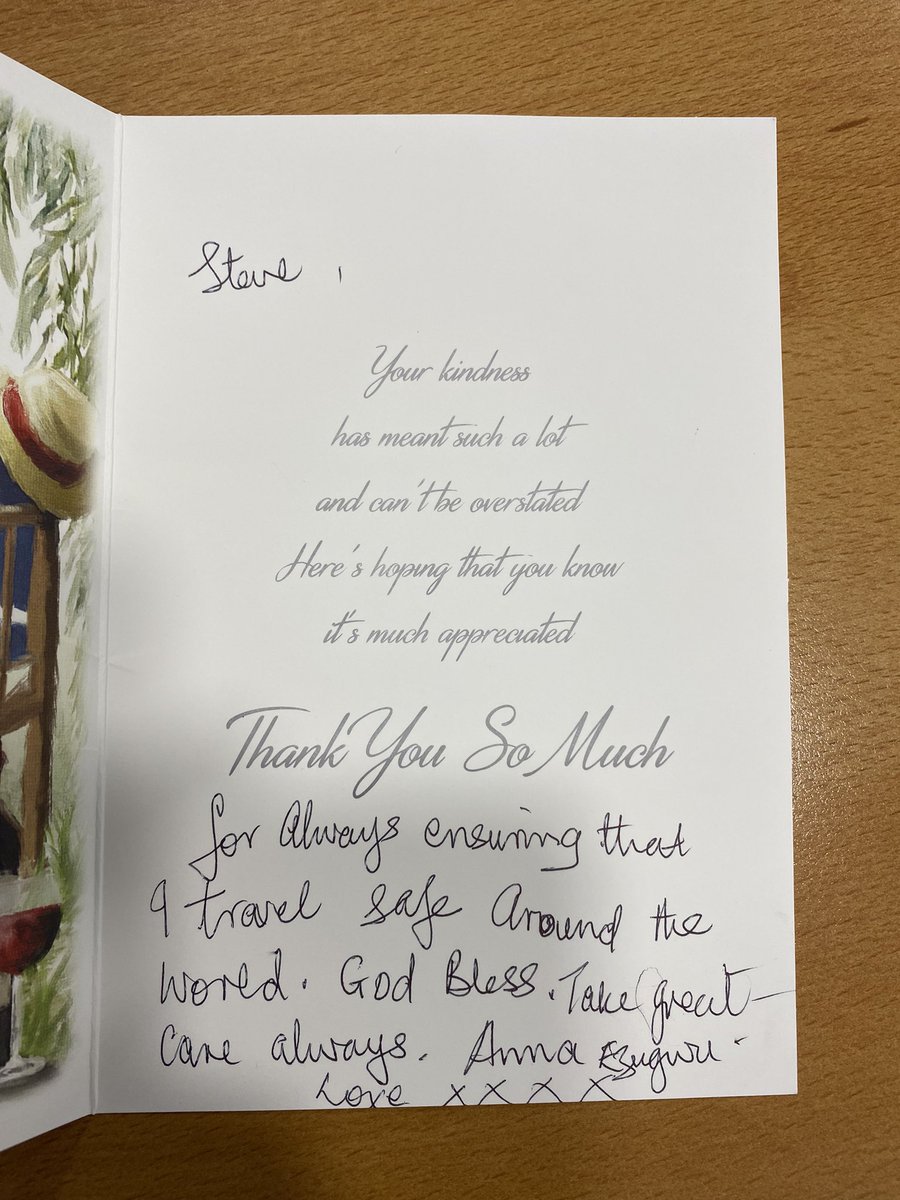 Steve ,
Your kindness
has meant such a lot
and can't be overstated
Here's hoping that you know
it's much appreciated
Thank You So Much
for Always ensuring that
I travel safe Around the
World. God Bless. Take great
Care always. Anna Ezugwu.
Love X X X X